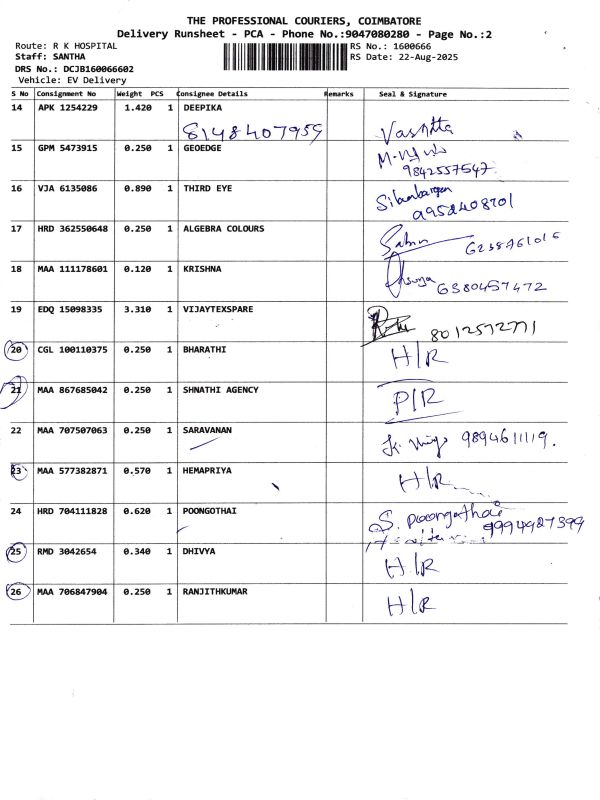 THE PROFESSIONAL COURIERS, COIMBATORE
Delivery Runsheet - PCA - Phone No.:9047080280 - Page No.:2
Route: R K HOSPITAL RS No.: 1600666
Staff: SANTHA RS Date: 22-Aug-2025
DRS No.: DCJB160066602
Vehicle: EV Delivery
S No Consignment No Weight PCS Consignee Details Remarks Seal & Signature
14 APK 1254229 1.420 1 DEEPIKA
8148407959
15 GPM 5473915 0.250 1 GEOEDGE
9842557547
16 VJA 6135086 0.890 1 THIRD EYE
17 HRD 362550648 0.250 1 ALGEBRA COLOURS
18 MAA 111178601 0.120 1 KRISHNA
6380457472
19 EDQ 15098335 3.310 1 VIJAYTEXSPARE
8012572771
20 CGL 100110375 0.250 1 BHARATHI H/R
21 MAA 867685042 0.250 1 SHNATHI AGENCY P/R
22 MAA 707507063 0.250 1 SARAVANAN 9894611119.
23 MAA 577382871 0.570 1 HEMAPRIYA H/R
24 HRD 704111828 0.620 1 POONGOTHAI S. Poongothai
9994987399
25 RMD 3042654 0.340 1 DHIVYA H/R
26 MAA 706847904 0.250 1 RANJITHKUMAR H/R